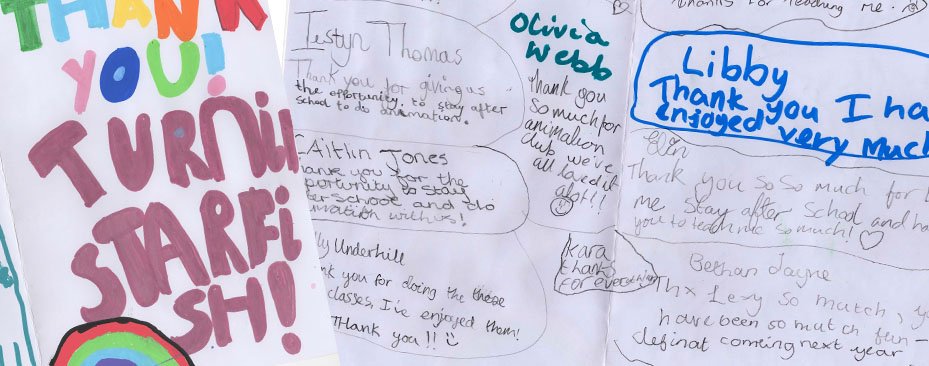 THANK
YOU!
TURNIN
STARFI
SH!
Iestyn Thomas
Thank you for giving us
the opportunity. to stay after
school to do animation.
CAITLIN JONES
thank you for the
opportunity to stay
after school and do
animation with us!
lly Underhill
nk you for doing the these
classes, I've enjoyed them!
THank you!!
Olivia
Webb
thank you
so much for
animation
club we've
all loved it
alot!!
Kara
thanks
for everything
thanks for teaching me.
Libby
Thank you I ha
enjoyed very Much
Elin
Thank you so so much for l
me stay after school and ha
you to teach me so much!
Bethan Jayne
Thx Lexy so mutch, y
have been so mutch fun -
definat comeing next year